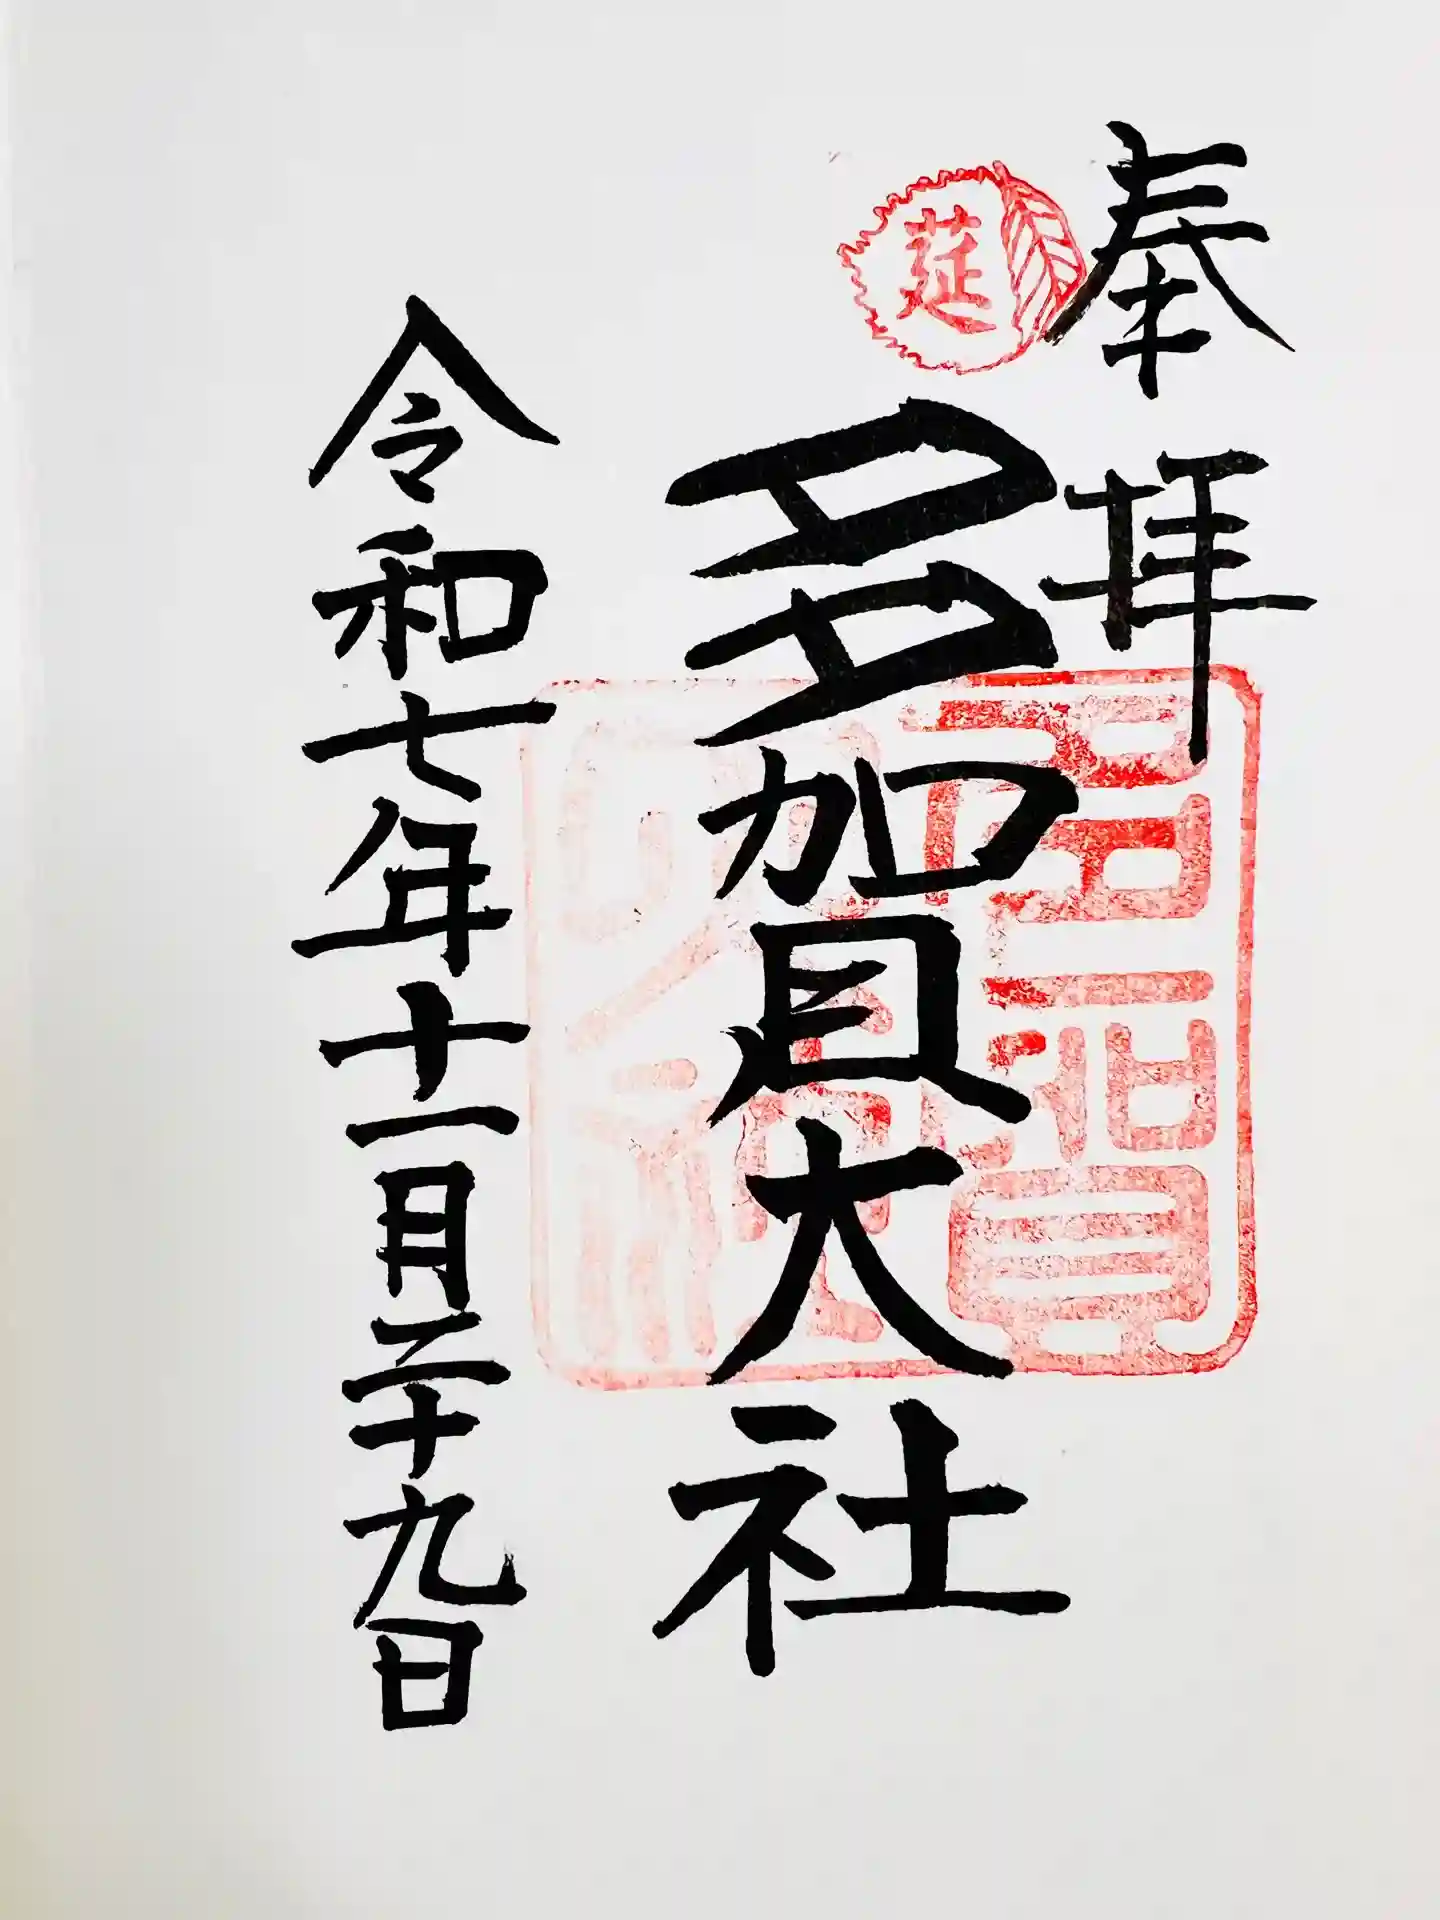 奉拝
莚
多賀大社
令和七年十一月二十九日